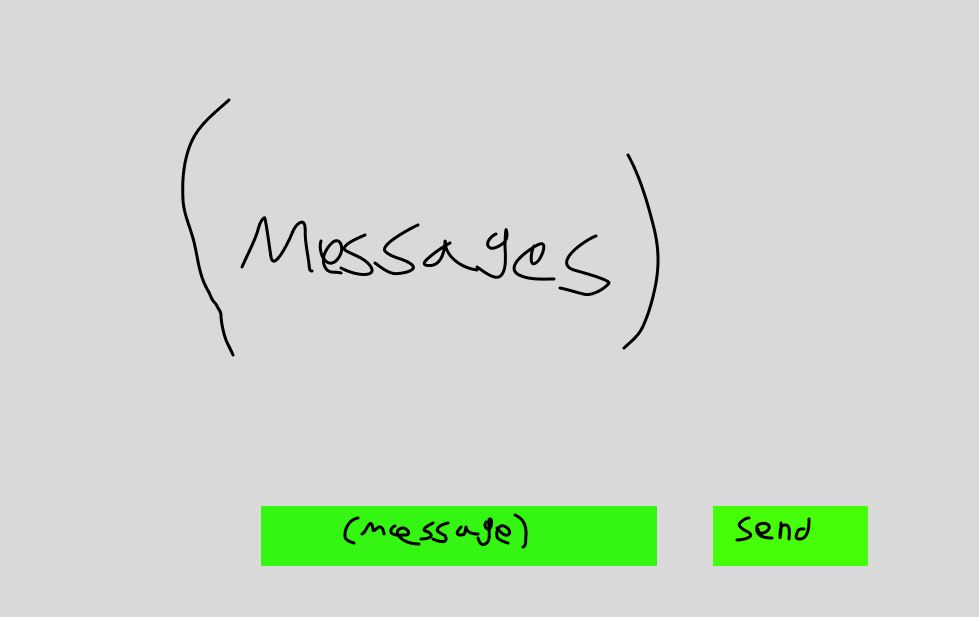 (Messages)
(message) send